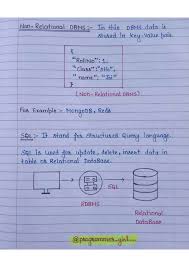 Non-Relational DBMS :- In this DBMS data is
stored in key-value pair.
{
"RollNo": 1,
"Class": "5th",
"name":
}
(Non-Relational DBMS)
For Example :- MongoDB, Redis
SQL :- It stand for structured Query language.
SQL is used for update, delete, insert data in
table or Relational DataBase.
SQL
RDBMS
Relational
DataBase
@programmer_girl__